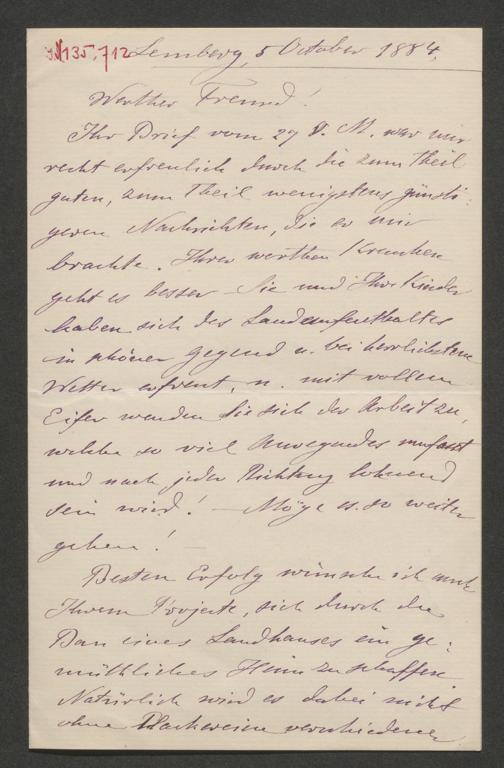 I.N. 135.712 Lemberg, 5 October 1884.
Werther Freund!
Ihr Brief vom 27 v. M. war mir
recht erfreulich durch die zum Theil
guten, zum Theil wenigstens günsti-
geren Nachrichten, die er mir
brachte. Ihrer werthen Kranken
geht es besser – Sie und Ihre Kinder
haben sich des Landaufenthaltes
in schöner Gegend u. bei herrlichstem
Wetter erfreut, u. mit vollem
Eifer wenden Sie sich der Arbeit zu,
welche so viel Anregendes umfasst
und nach jeder Richtung lohnend
sein wird! – Möge es so weiter
gehen! –
Besten Erfolg wünsche ich auch
Ihrem Projecte, sich durch den
Bau eines Landhauses ein ge-
müthliches Heim zu schaffen.
Natürlich wird es dabei nicht
ohne Plackereien verschiedener